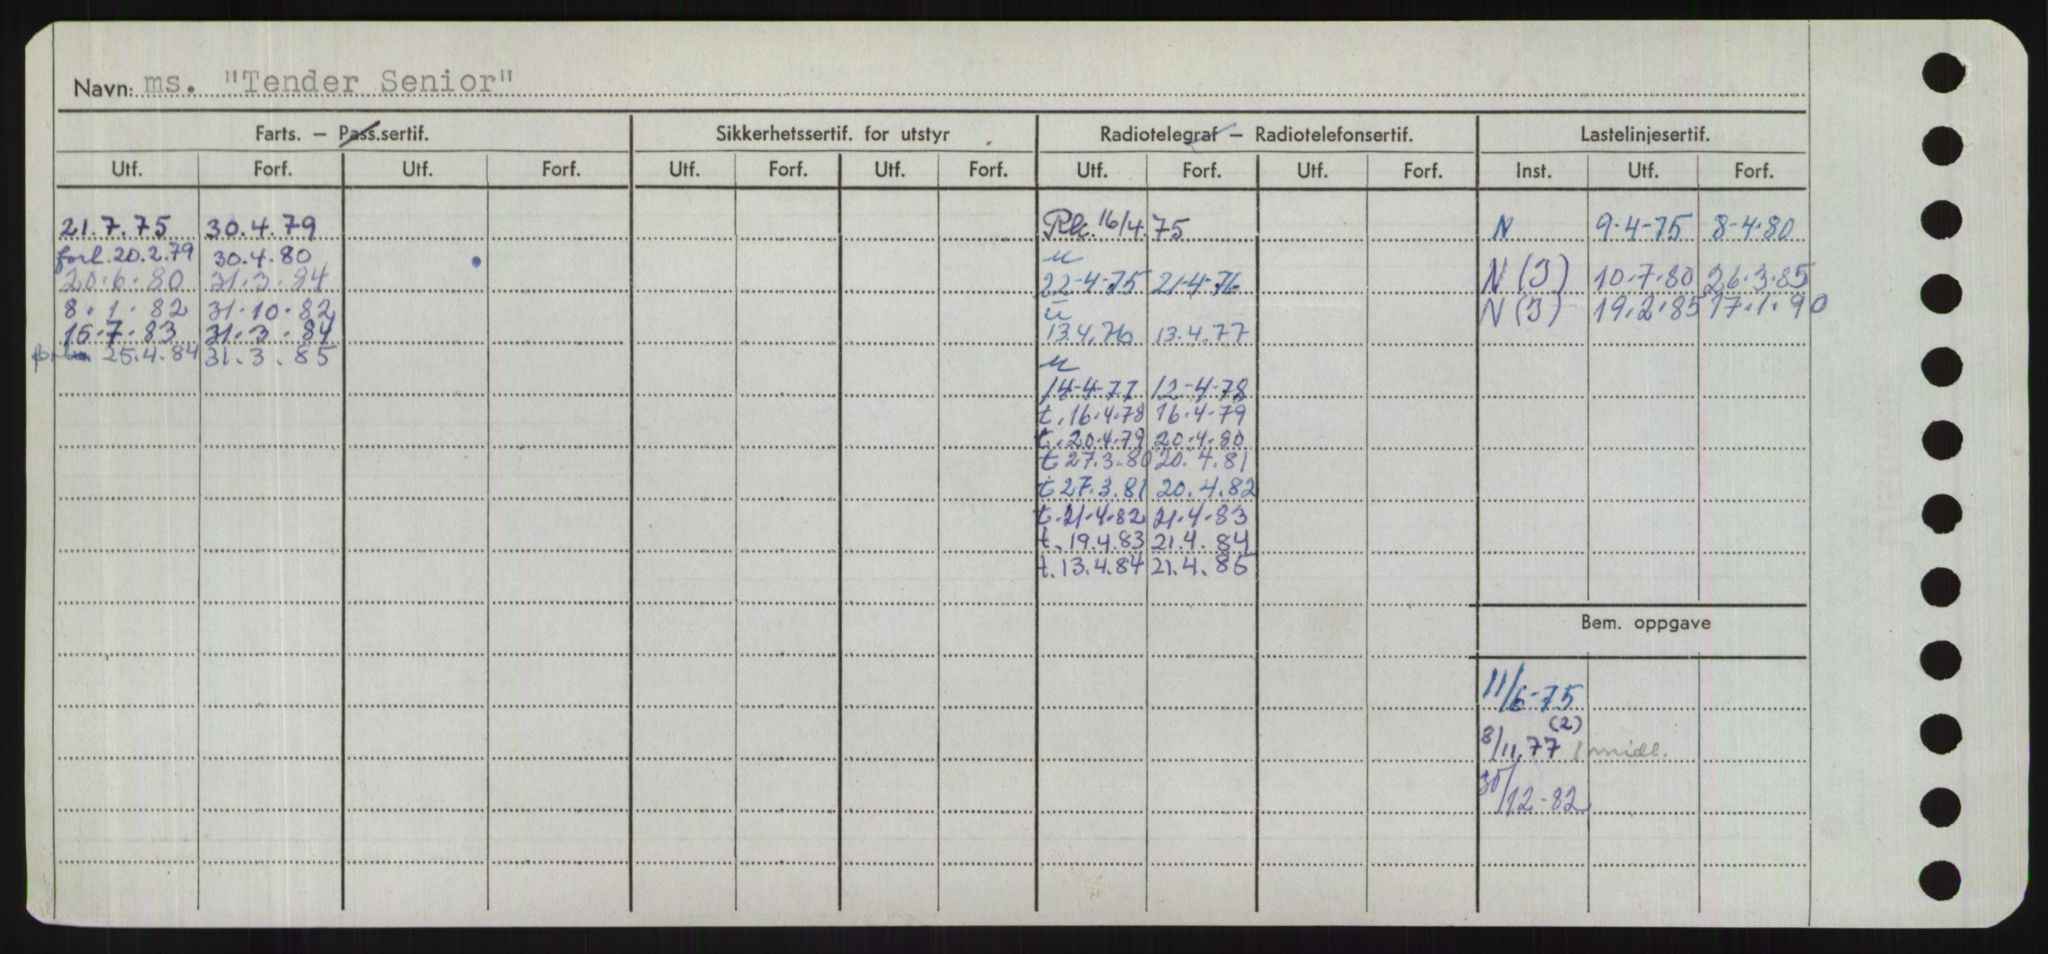 Navn: ms. "Tender Senior"
Farts. – Pass.sertif. Sikkerhetssertif. for utstyr Radiotelegraf – Radiotelefonsertif. Lastelinjesertif.
Utf. Forf. Utf. Forf. Utf. Forf. Utf. Forf. Utf. Forf. Utf. Forf. Inst. Utf. Forf.
21.7.75 30.4.79 16/4.75 N 9-4-75 8-4-80
forl. 20.2.79 30.4.80 u
20.6.80 31.3.84 22-4-75 21-4-76 N(J) 10.7.80 26.3.85
8.1.82 31.10.82 u N(J) 19.2.85 17.1.90
15.7.83 31.3.84 13.4.76 13.4.77
25.4.84 31.3.85 u
14-4-77 12-4-78
t.16.4.78 16.4.79
t.20.4.79 20.4.80
t 27.3.80 20.4.81
t 27.3.81 20.4.82
t.21.4.82 21.4.83
t.19.4.83 21.4.84
t.13.4.84 21.4.85
Bem. oppgave
11/6-75
(2)
8/11.77 midl.
30/12-82